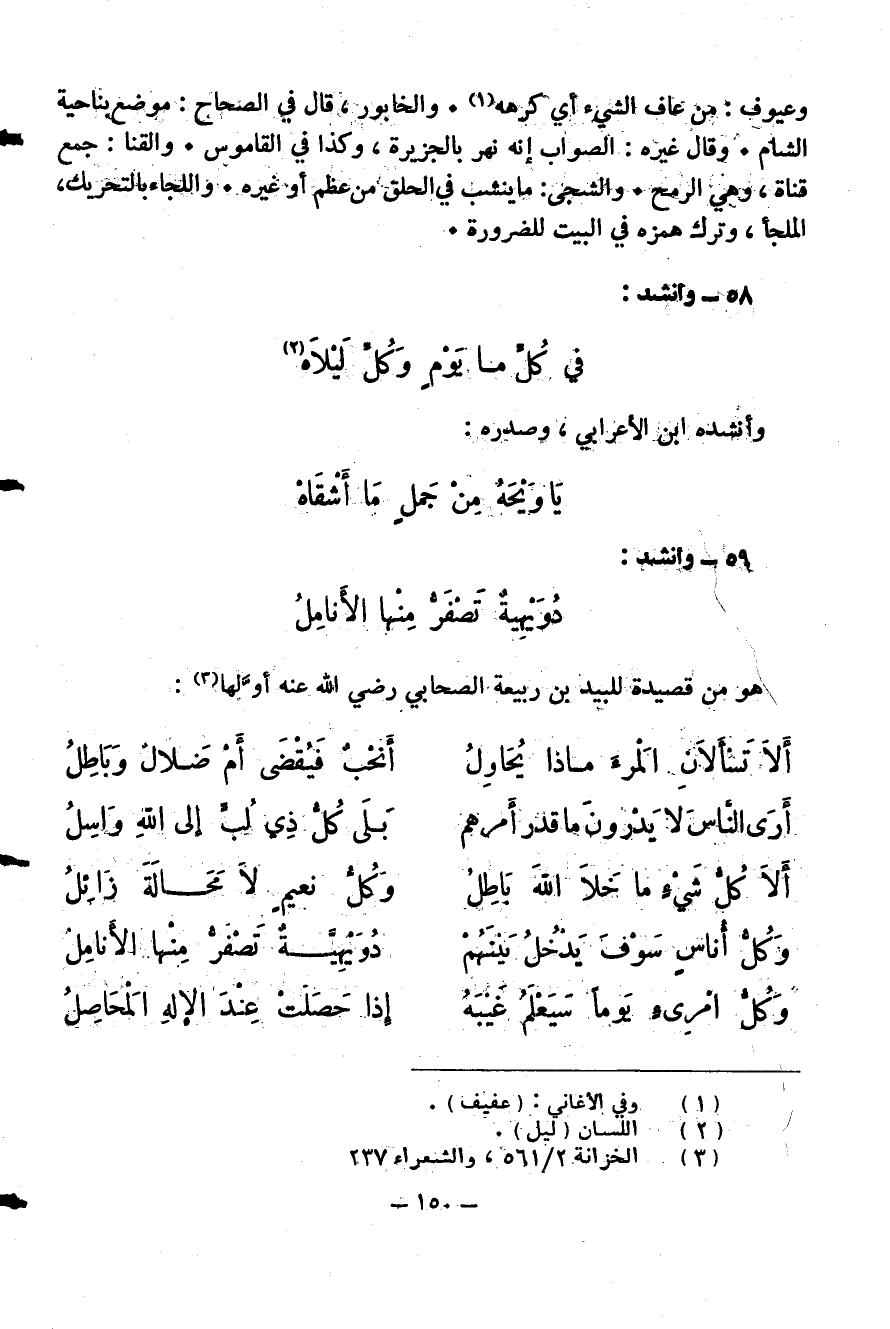 وعيوف : من عاف الشيء أي كرهه(١) • والخابور ، قال في الصحاح : موضع بناحية
الشام • وقال غيره : الصواب إنه نهر بالجزيرة ، وكذا في القاموس • والقنا : جمع
قناة ، وهي الرمح • والشجى : ماينشب في الحلق من عظم أو غيره • واللجاء بالتحريك،
الملجأ ، وترك همزه في البيت للضرورة •
٥٨ ــ وأنشد :
في كُلِّ مـا يَوْمٍ وَكُلِّ لَيْلاَه(٢)
وأنشده ابن الأعرابي ، وصدره :
يَا وَيْحَهُ مِنْ جَملٍ مَا أَشْقَاهْ
٥٩ ــ وأنشد :
دُوَيْهِيةٌ تَصْفَرُّ مِنْها الأَنامِلُ
هو من قصيدة للبيد بن ربيعة الصحابي رضي الله عنه أوَّلها(٣) :
أَلاَ تَسْأَلاَنِ المَرءَ مـاذا يُحَاوِلُ أَنَحْبٌ فَيُقْضَى أَمْ ضَـلالٌ وَبَاطِلُ
أَرَى النَّاسَ لا يَدْرونَ ما قدر أمرهم بَـلَى كُلُّ ذِي لُبٍّ إلى اللهِ وَاسِلُ
أَلاَ كُلُّ شَيْءٍ ما خَلاَ اللهَ بَاطِلُ وَكُلُّ نعيمٍ لاَ مَحَـــالَةَ زَائِلُ
وَكُلُّ أُناسٍ سَوْفَ يَدْخُلُ بَيْنَهُمْ دُوَيْهِيَّـــةٌ تَصْفَرُّ مِنْها الأَنامِلُ
وَكُلُّ امْرِىءٍ يَوماً سَيَعْلَمُ غَيْبَهُ إذا حَصَلَتْ عِنْدَ الإلهِ المَحَاصِلُ
(١) وفي الأغاني : (عفيف) .
(٢) اللسان (ليل) .
(٣) الخزانة ٥٦١/٢ ، والشعراء ٢٣٧
ــ ١٥٠ ــ